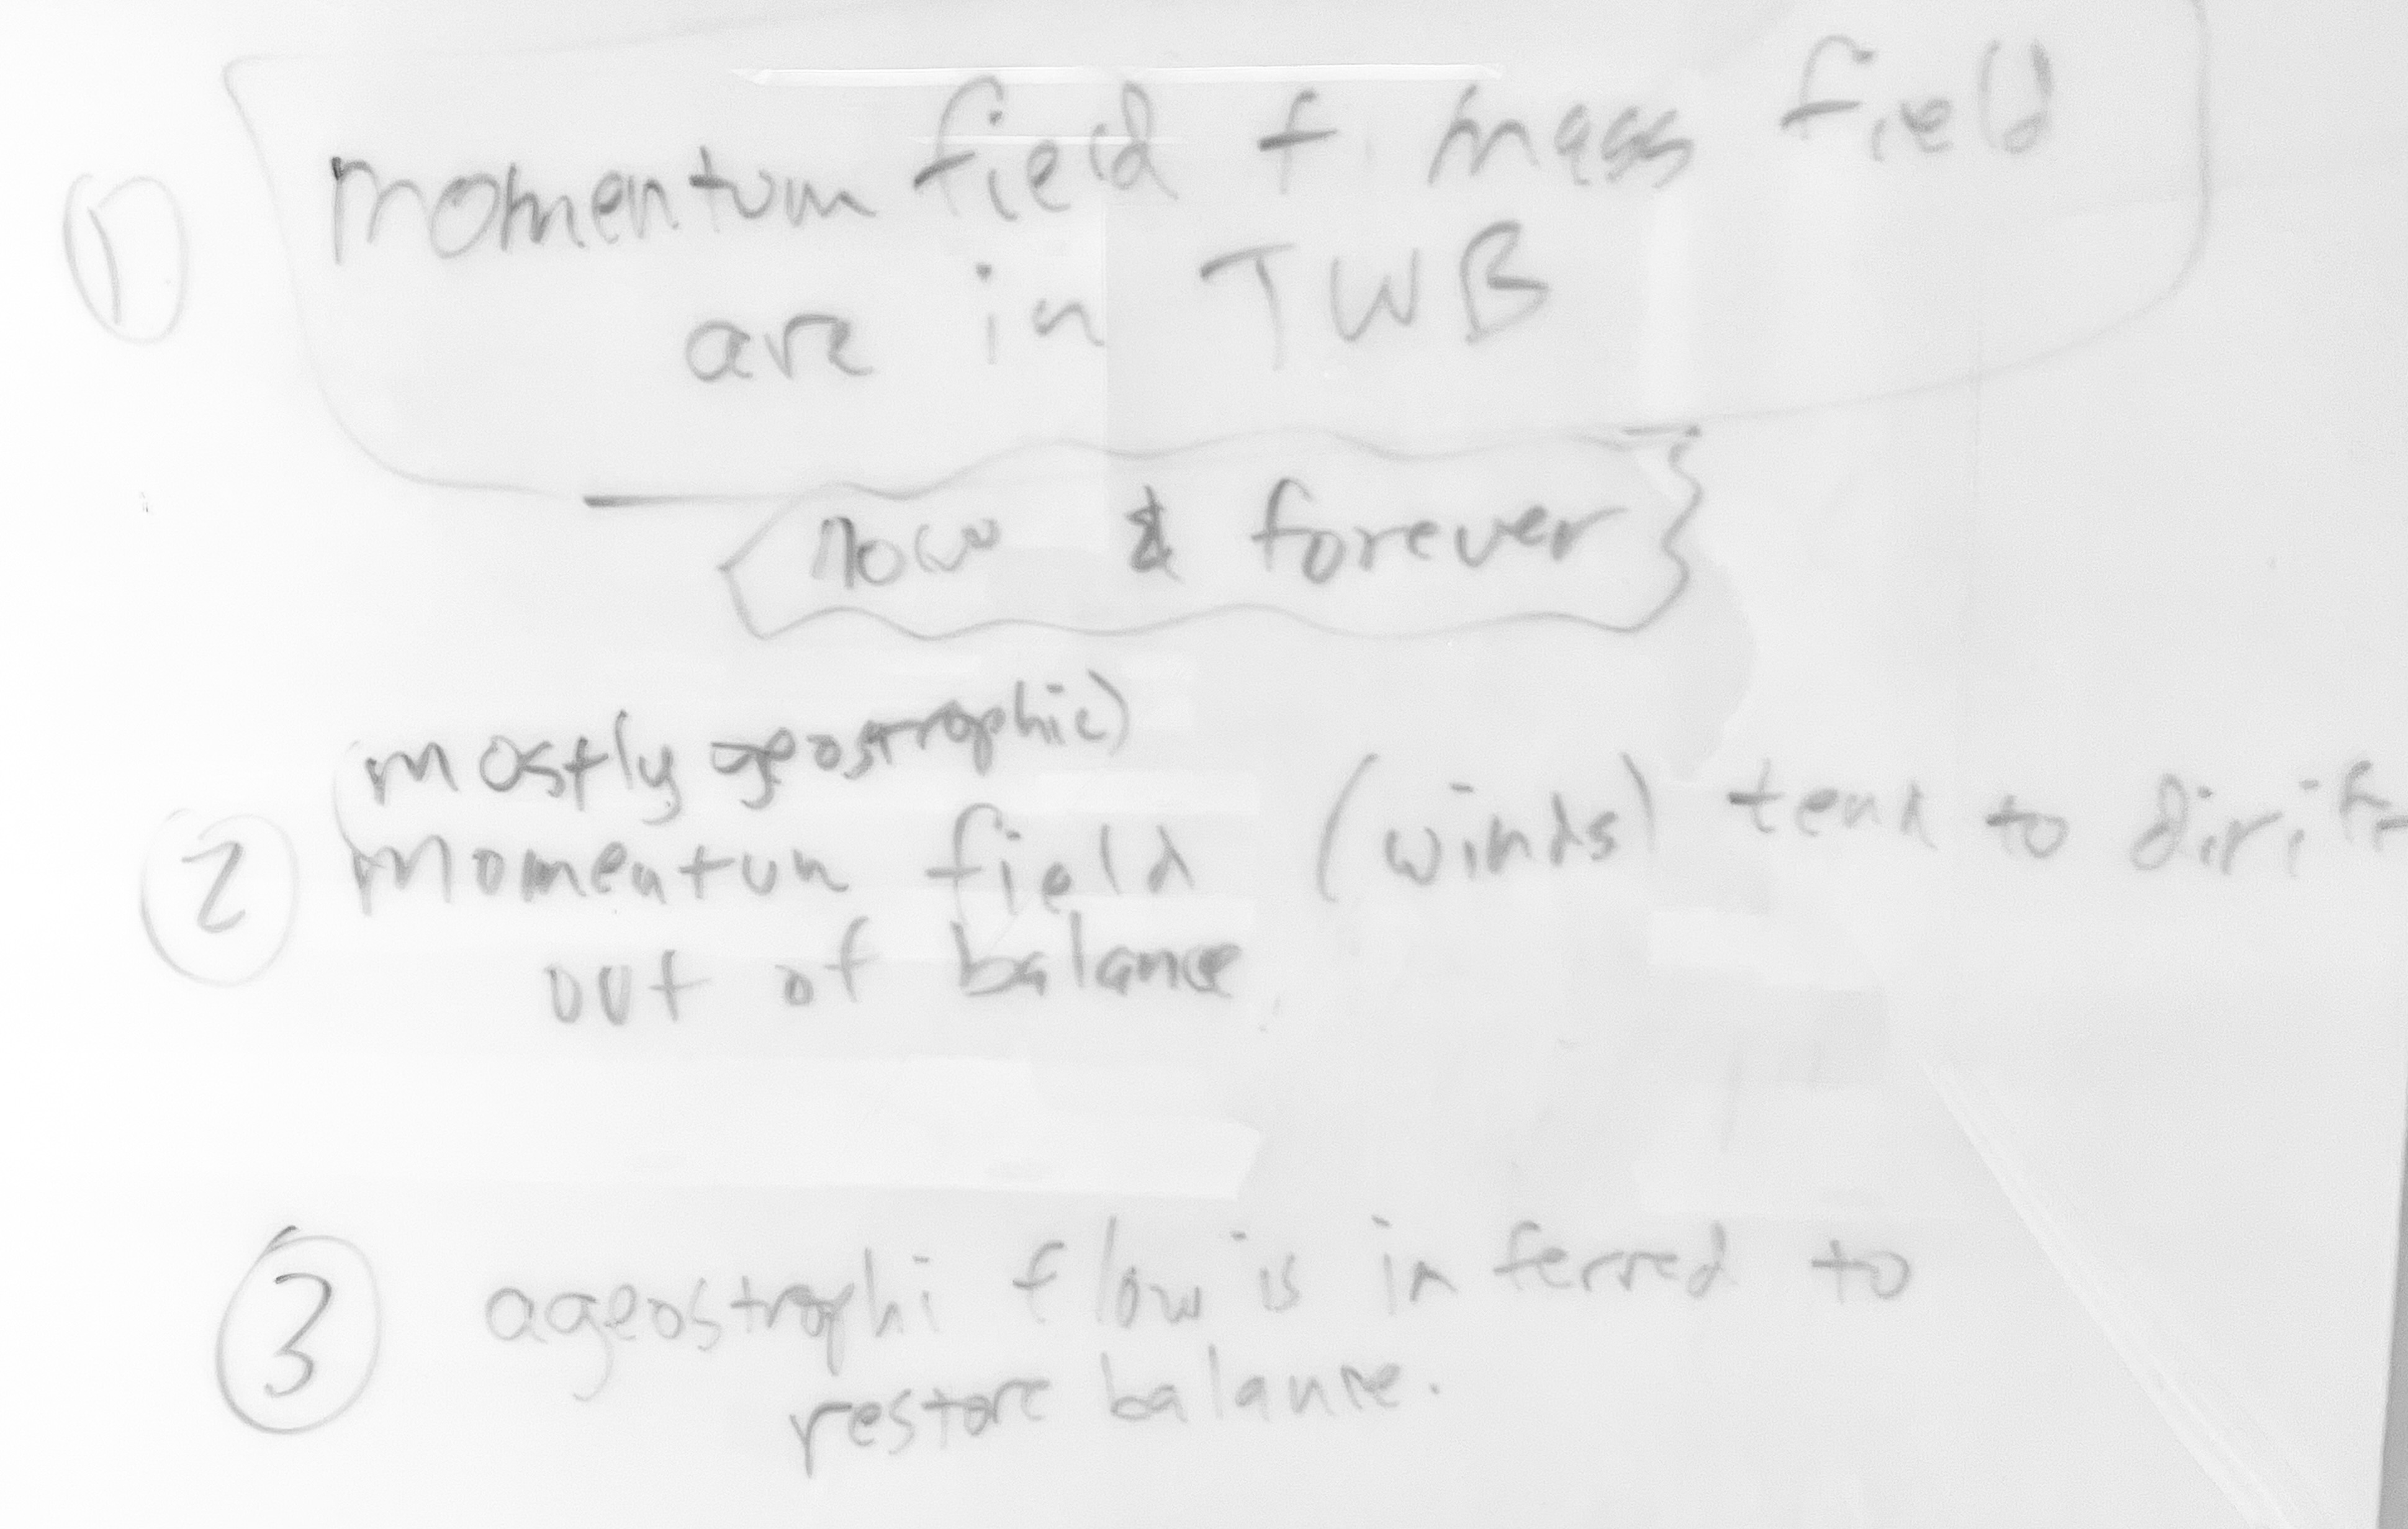 ① momentum field + mass field
are in TWB
now & forever
(mostly geostrophic)
② momentum field (winds) tend to
out of balance
③ ageostrophi flow is inferred to
restore balance.